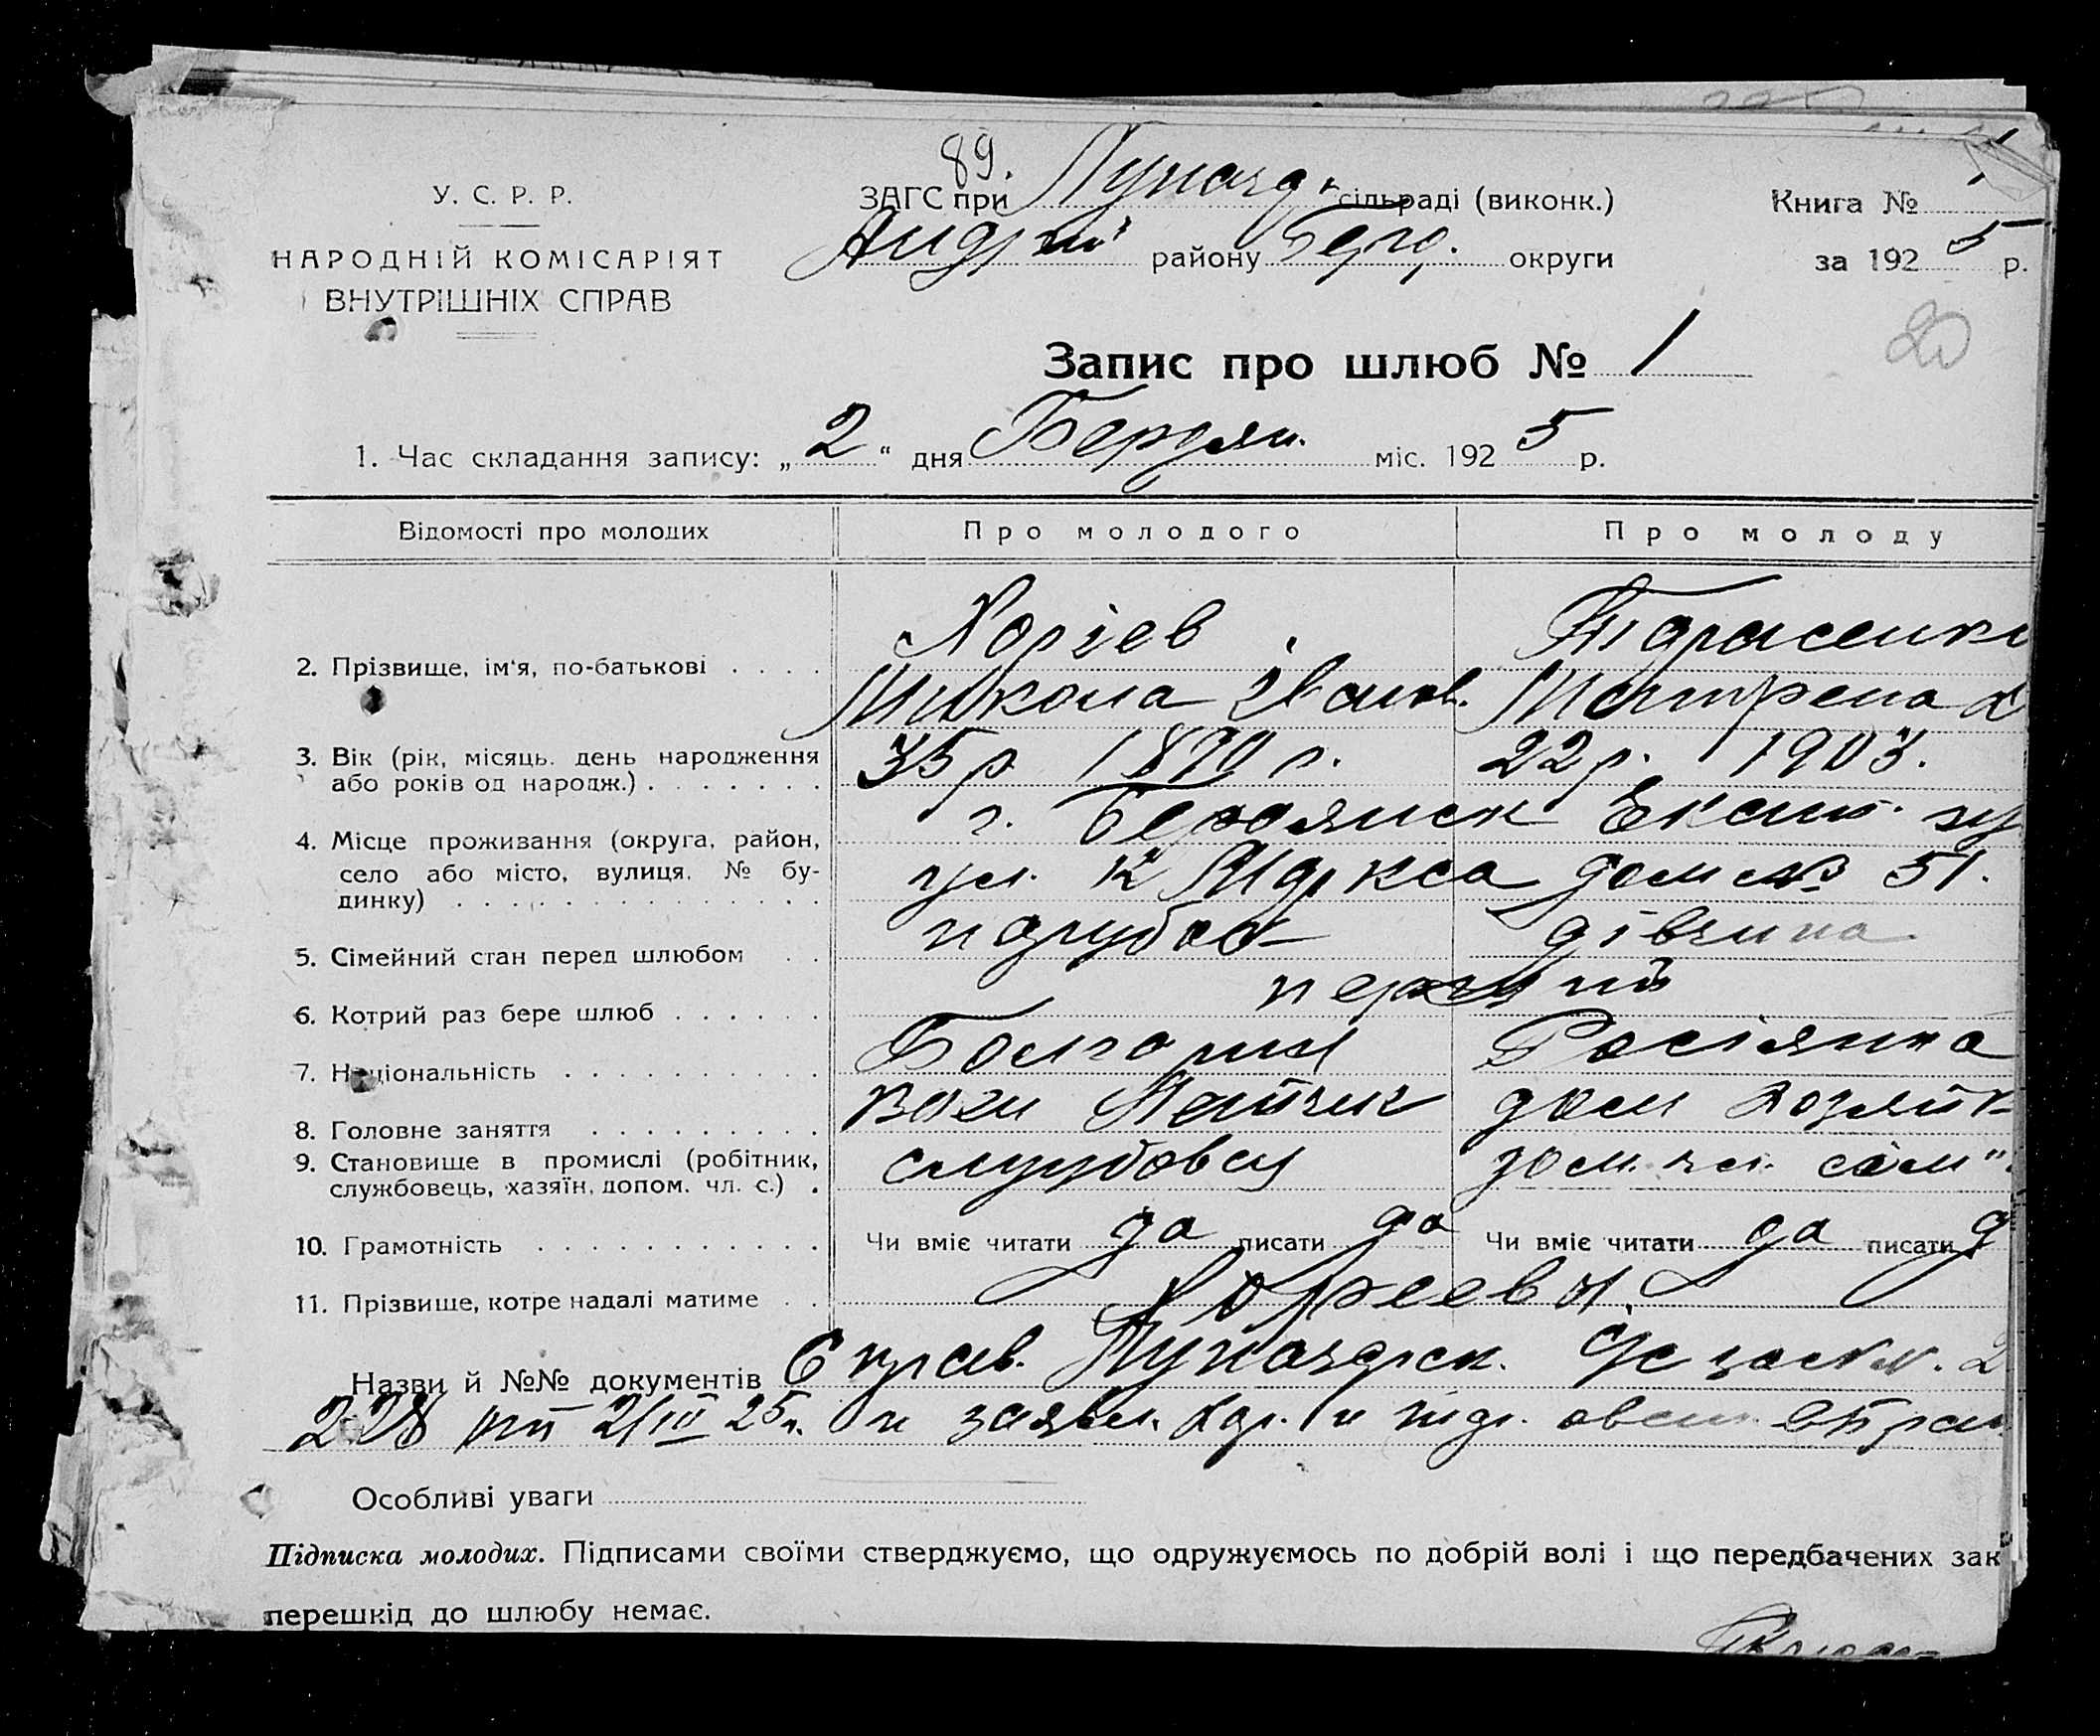 89.
У. С. Р. Р.
ЗАГС при Луначар. сільраді (виконк.)
Книга №
НАРОДНІЙ КОМІСАРІЯТ
Андрії району Берд. округи
за 192 5 р.
ВНУТРІШНІХ СПРАВ
20
Запис про шлюб № 1
1. Час складання запису: „ 2 “ дня Бердян. міс. 192 5 р.
Відомості про молодих
Про молодого
Про молоду
2. Прізвище, ім'я, по-батькові
Хоріев
Тарасенко
Микола Иванов.
Матрена
3. Вік (рік, місяць, день народження
або років од народж.)
35 р 1890 г.
22 р. 1903.
4. Місце проживання (округа, район,
село або місто, вулиця, № бу-
динку)
г. Бердянск Екат.
ул. К Маркса дом № 51.
5. Сімейний стан перед шлюбом
парубок
дівчина
6. Котрий раз бере шлюб
перший
7. Національність
Болгарин
Росіянка
8. Головне заняття
дом хозяйк
9. Становище в промислі (робітник,
службовець, хазяїн, допом. чл. с.)
службовец
чл. сім"
10. Грамотність
Чи вміє читати да писати да
Чи вміє читати да писати д
11. Прізвище, котре надалі матиме
Хореевы.
Назви й №№ документів Справ. Луначарск.
228 от 2/III 25 г. и заявл.
Особливі уваги
Підписка молодих. Підписами своїми стверджуємо, що одружуємось по добрій волі і що передбачених зак
перешкід до шлюбу немає.